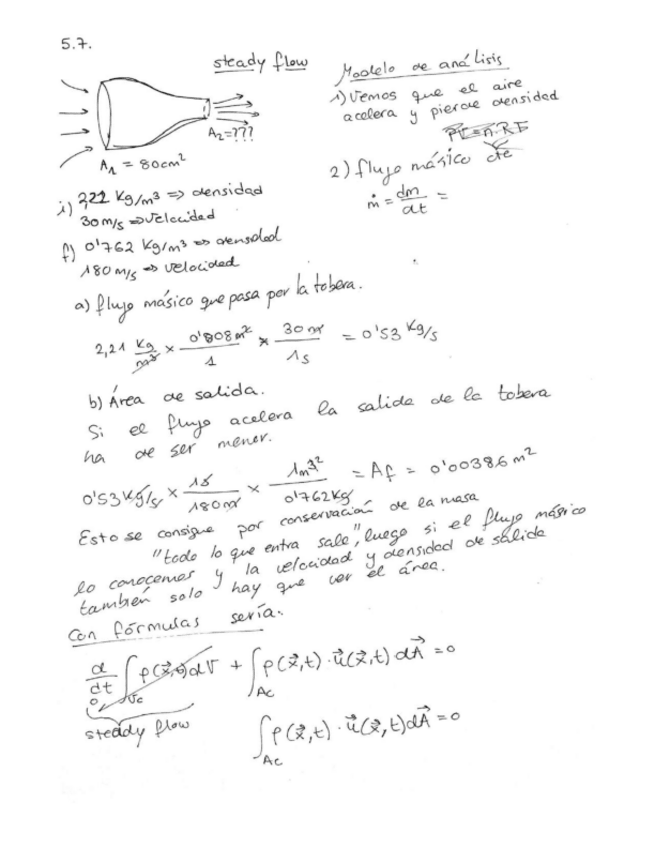 5.7.
steady flow
Modelo de análisis
1) Vemos que el aire
acelera y pierde densidad
2) flujo másico cte
ṁ = dm/dt =
A₂=???
A₁ = 80cm²
i) 2,21 Kg/m³ => densidad
30 m/s => velocidad
f) 0'762 Kg/m³ => densidad
180 m/s => velocidad
a) flujo másico que pasa por la tobera.
2,21 Kg/m³ × 0'008m²/1 × 30 m/1s = 0'53 Kg/s
b) Área de salida.
Si el flujo acelera la salida de la tobera
ha de ser menor.
0'53 Kg/s × 1s/180m × 1m³/0'762Kg = Af = 0'00386 m²
Esto se consigue por conservación de la masa
"todo lo que entra sale", luego si el flujo másico
lo conocemos y la velocidad y densidad de salida
también solo hay que ver el área.
Con fórmulas sería:
d/dt ∫_Vc ρ(x⃗,t)dV + ∫_Ac ρ(x⃗,t)·u⃗(x⃗,t) dA⃗ = 0
0
steady flow
∫_Ac ρ(x⃗,t)·u⃗(x⃗,t)dA⃗ = 0